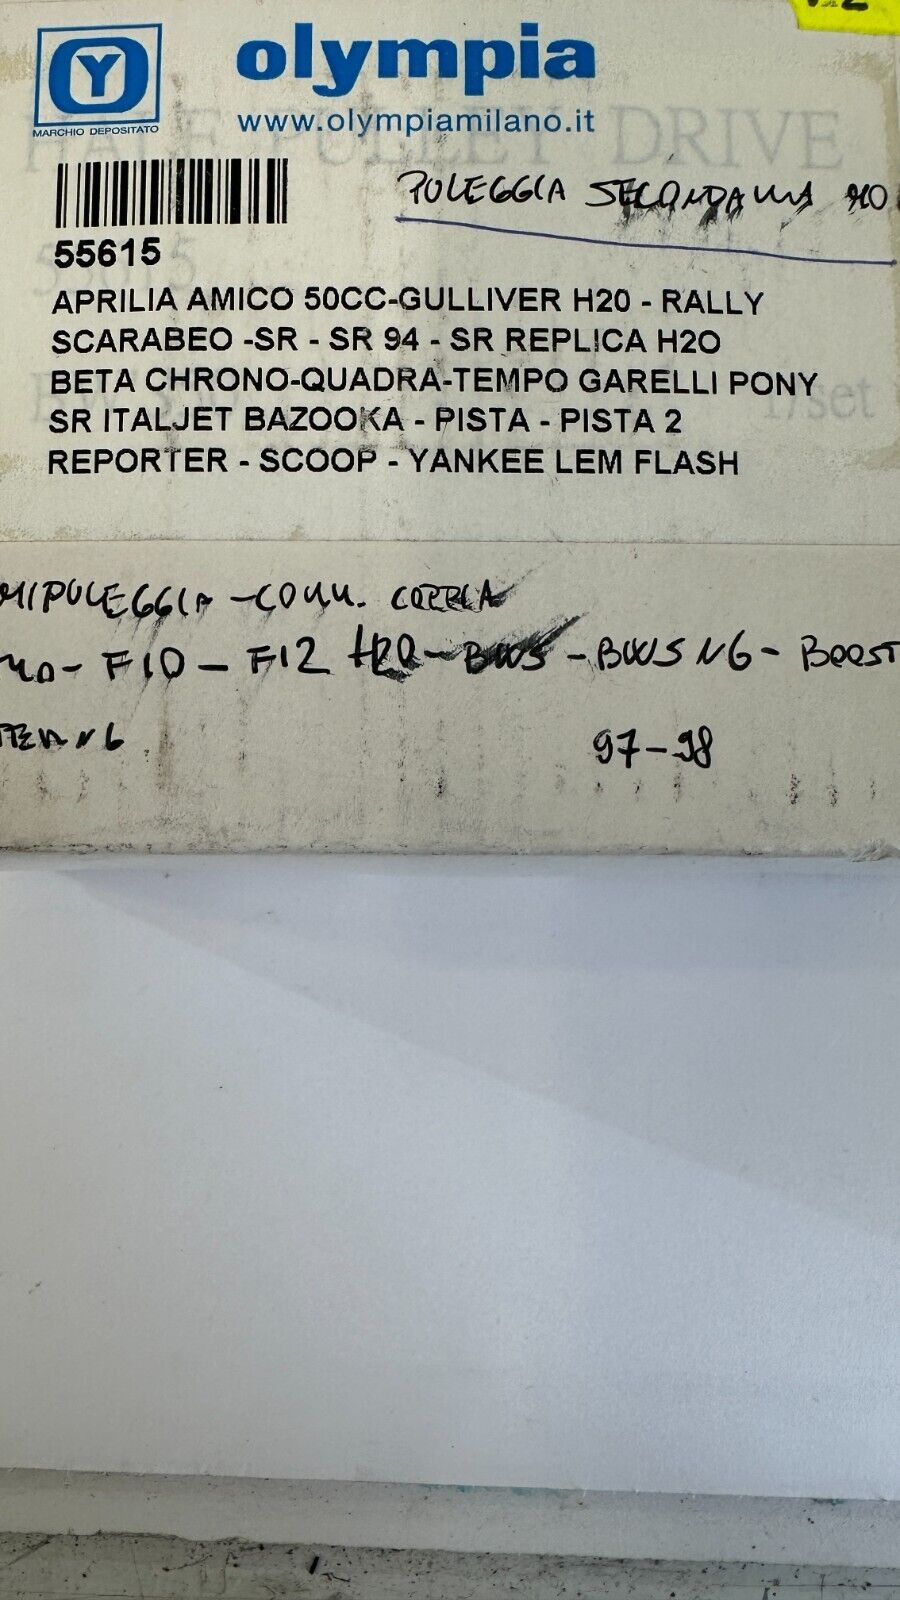 olympia
MARCHIO DEPOSITATO
www.olympiamilano.it
HALF PULLEY DRIVE
PULEGGIA SECONDARIA
55615
APRILIA AMICO 50CC-GULLIVER H20 - RALLY
SCARABEO -SR - SR 94 - SR REPLICA H2O
BETA CHRONO-QUADRA-TEMPO GARELLI PONY
1/set
SR ITALJET BAZOOKA - PISTA - PISTA 2
REPORTER - SCOOP - YANKEE LEM FLASH
MIPULEGGIA - COM. CORREA
F10 - F12 H20 - BWS - BWS NG - BOOST
NG
97-98